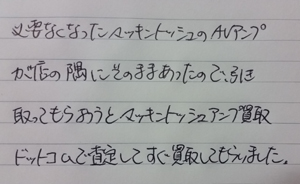 必要なくなったマッキントッシュのAVアンプ
が店の隅にそのままあったので、引き
取ってもらおうとマッキントッシュアンプ買取
ドットコムで査定してすぐ買取してもらいました。